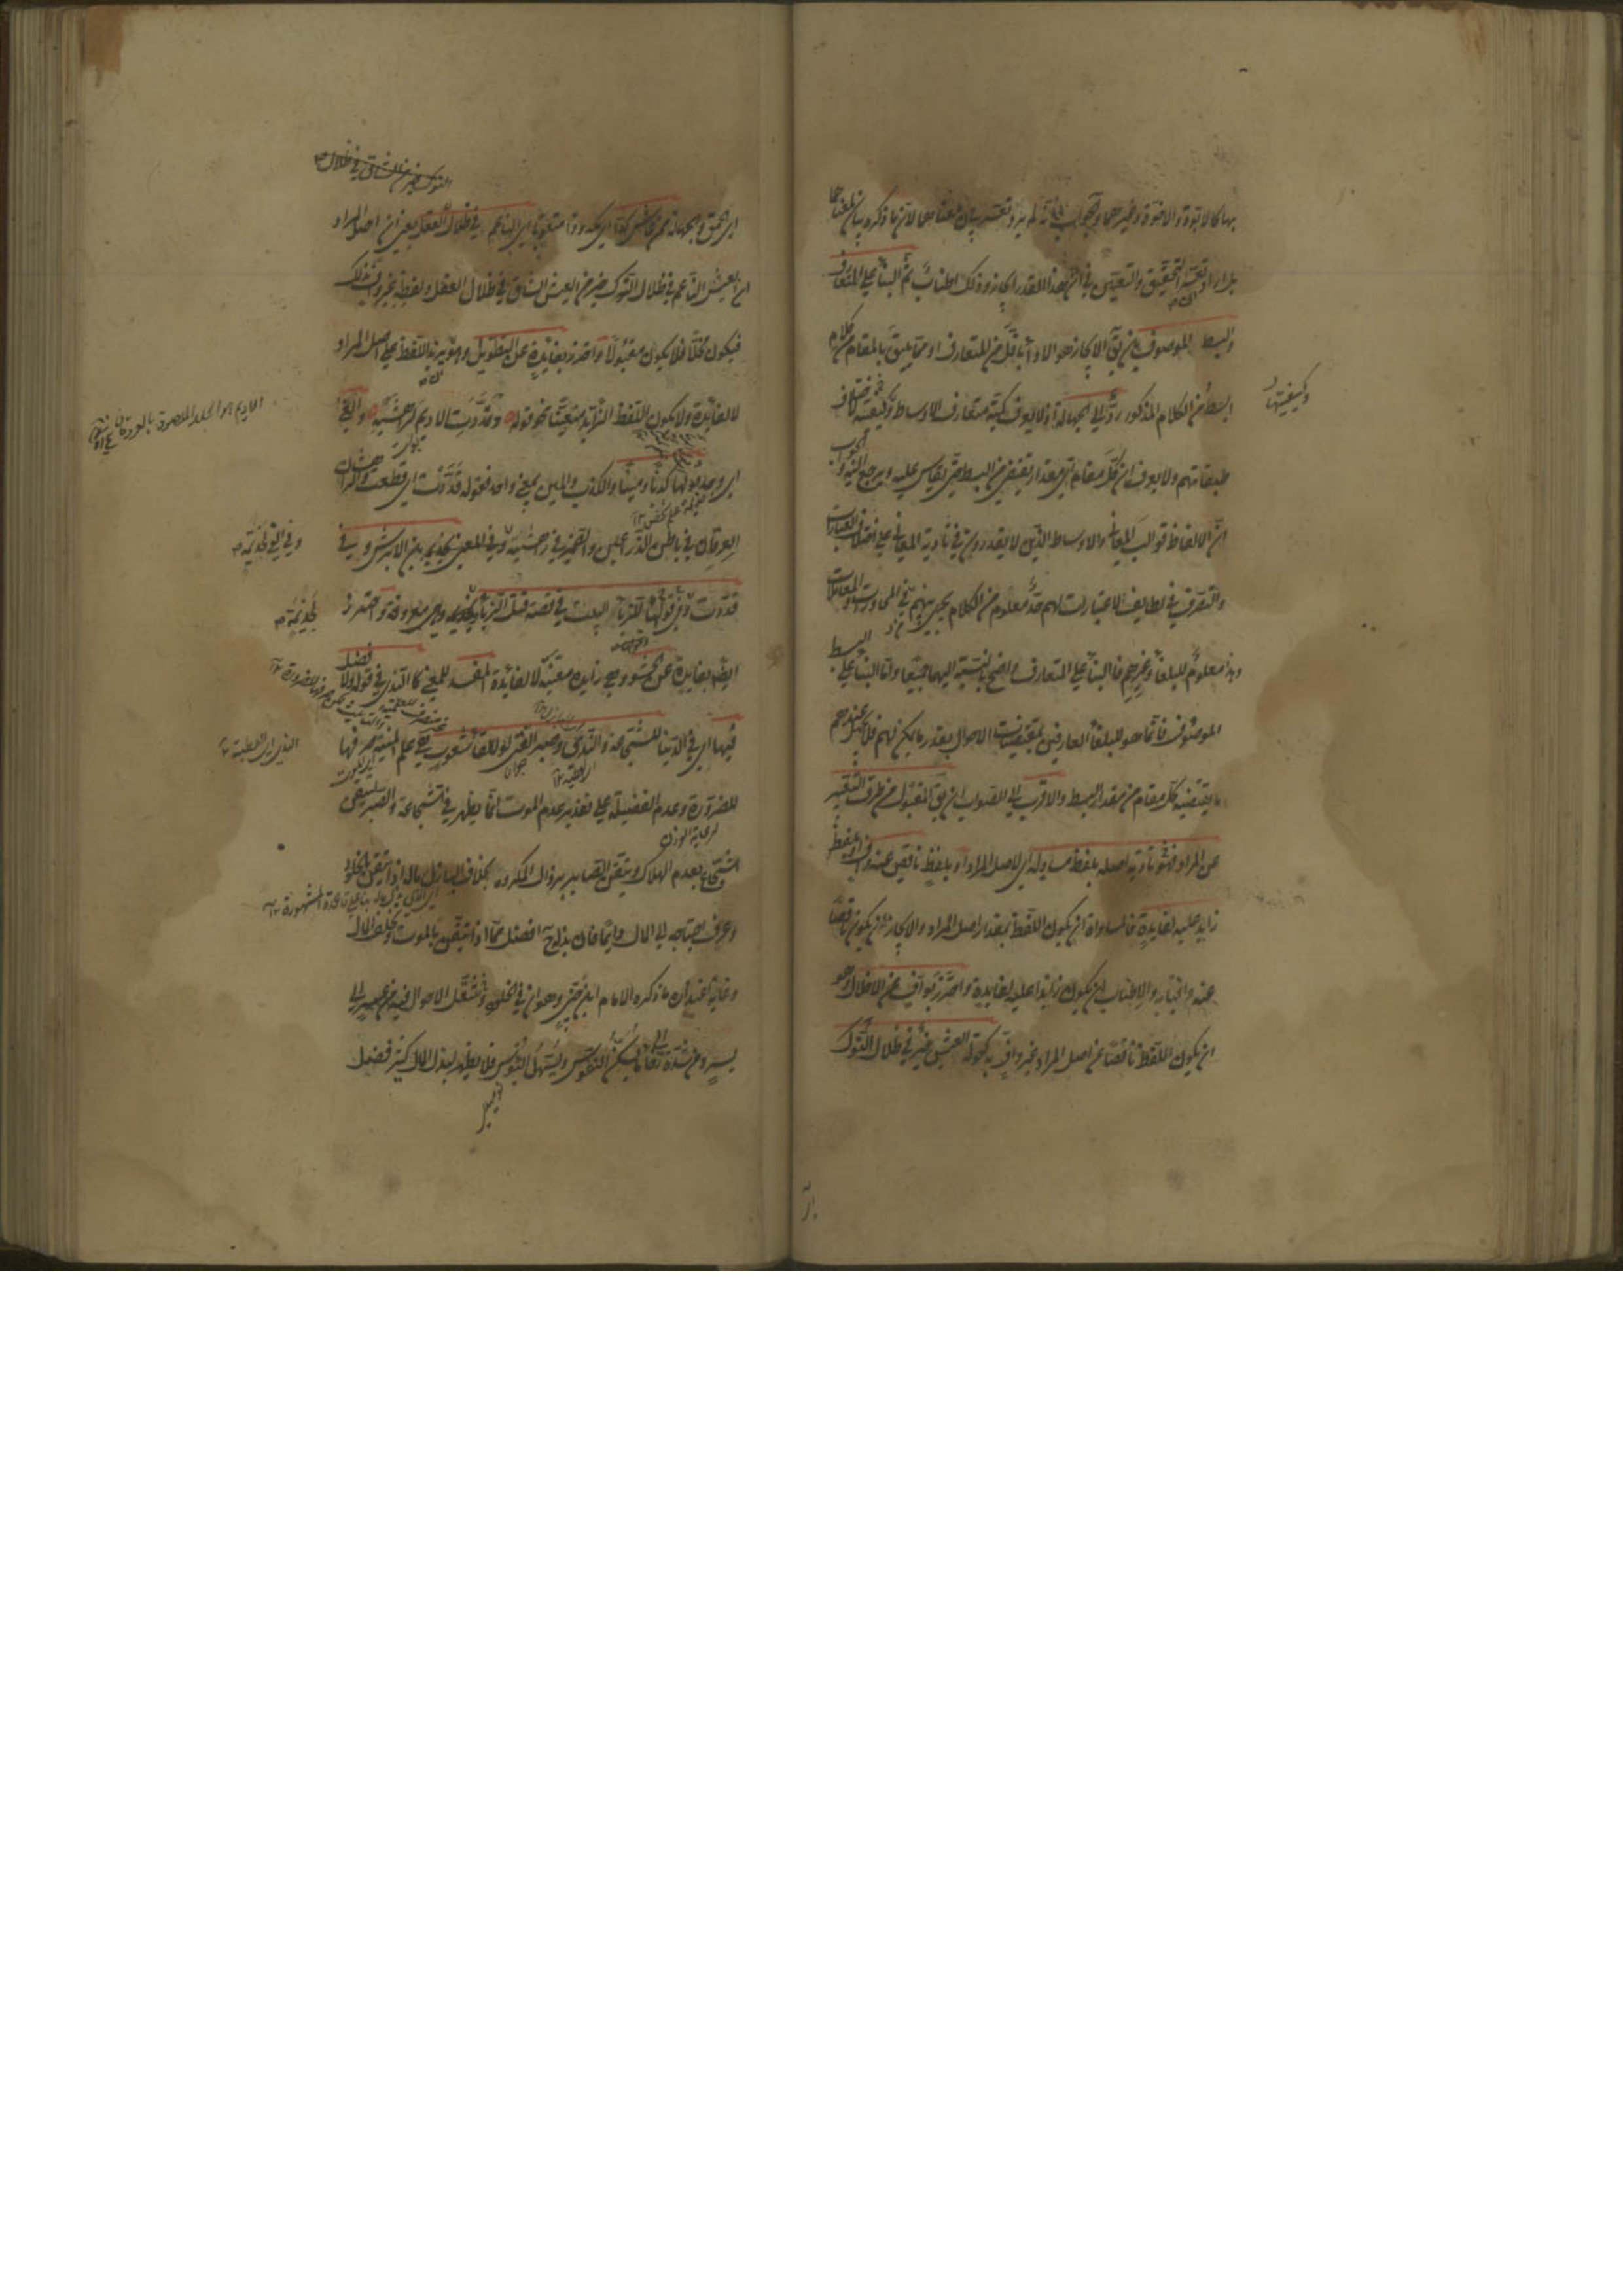 بها كالابوة والاخوة وغيرهما والجواب انه لم يرد تعسر بيان معناهما لان ما ذكره بيان لمعناهما
بل اراد تعسر التحقيق والتعيين في ان هذا القدر ايجاز وذلك اطناب ثم البناء على المتعارف
والبسط الموصوف بان يق الايجاز هو الاداء باقل من المتعارف او مما يليق بالمقام من كلام
ابسط من الكلام المذكور رد الى الجهالة اذ لا يعرف كمية متعارف الاوساط وكيفيته لاختلاف
وكيفيتها
طبقاتهم ولا يعرف ان كل مقام اي مقدار يقتضي من البسط حتى يقاس عليه ويرجع اليه والجواب
ان الالفاظ قوالب المعاني والاوساط الذين لا يقدرون في تادية المعاني على اختلاف العبارات
والتصرف في لطايف الاعتبارات لهم حد معلوم من الكلام يجري بينهم في المحاورات والمعاملات
وهذا معلوم للبلغاء وغيرهم فالبناء على المتعارف واضح بالنسبة اليهما جميعا واما البناء على البسط
الموصوف فانما هو للبلغاء العارفين بمقتضيات الاحوال بقدر ما يمكن لهم فلا يجهل عندهم
ما يقتضيه كل مقام من مقدار البسط والاقرب الى الصواب ان يق المقبول من طرق التعبير
عن المراد فهو تادية اصله بلفظ مساو له اي لاصل المراد او بلفظ ناقص عنه واف او بلفظ
زايد عليه لفايدة فالمساواة ان يكون اللفظ بمقدار اصل المراد والايجاز ان يكون ناقصا
عنه وافيا به والاطناب ان يكون زايدا عليه لفايدة واحترز بواف عن الاخلال وهو
ان يكون اللفظ ناقصا عن اصل المراد غير واف به كقوله العيش خير في ظلال النوك
النوك خير من الشاق في ظلال
اي الحمق والجهالة ممن عاش كدا اي مكدودا متعوبا اي الناعم في ظلال العقل يعني ان اصل المراد
ان العيش الناعم في ظلال النوك خير من العيش الشاق في ظلال العقل ولفظه غير واف بذلك
فيكون مخلا فلا يكون مقبولا واحترز بفايدة عن التطويل وهو ان يزيد اللفظ على اصل المراد
لا لفايدة ولا يكون اللفظ الزايد متعينا نحو قوله وقددت الاديم لراهشيه والفى
اي وجد قولها كذبا ومينا والكذب والمين بمعنى واحد فقوله قددت اي قطعت والراهشان
العرقان في باطن الذراعين والضمير في راهشيه وفي الفى لجذيمة بن الابرش وفي
وفي الفى لجذيمة
قددت وفي قولها للزباء البيت في قصة قتل الزباء لجذيمة وهي معروفة واحترز
لجذيمة
ايضا بفايدة عن الحشو وهي زايدة معينة لا لفائدة المفسد للمعنى كالندى في قوله ولا فضل
فيها اي في الدنيا للشجاعة والندى وصبر الفتى لولا لقاء شعوب هي علم المنية صرفها
الندى اي العطية
للضرورة وعدم الفضيلة على تقدير عدم الموت انما يظهر في الشجاعة والصبر لتيقن
لرعاية الوزن
الشجاع بعدم الهلاك وتيقن الصابر بزوال المكروه بخلاف الباذل ماله اذا تيقن بالخلود
وعرف احتياجه الى المال دائما فان بذله ح افضل مما اذا تيقن بالموت وتخلف المال
وغاية اعتذاره ما ذكره الامام ابن جني وهو ان في الخلود وتنقل الاحوال فيه من عسر الى
يسر ومن شدة الى رخاء ما يسكن النفوس ويسهل البؤس فلا يظهر لبذل المال كثير فضل